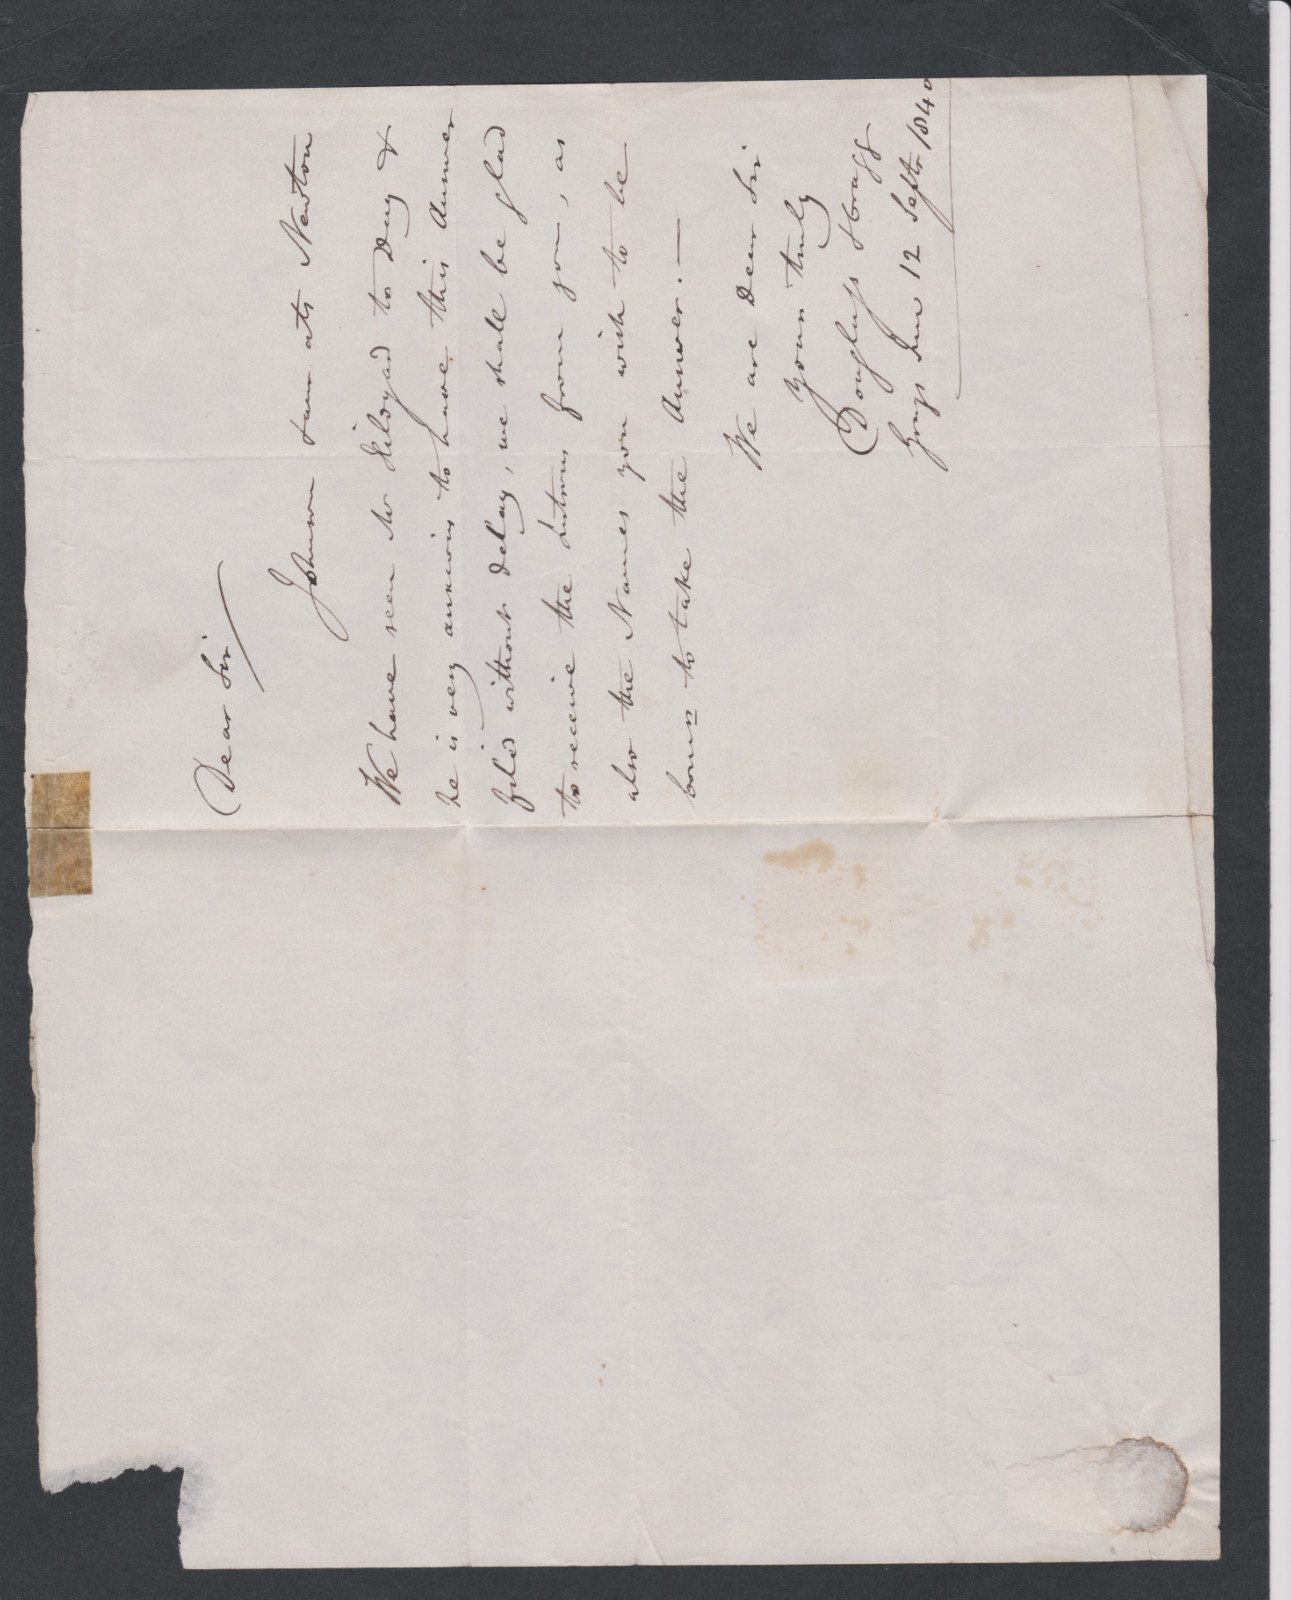 Dear Sir
Johnson
We have seen Mr to Day &
he is very anxious to have this Answer
filed without delay, we shall be glad
to receive the from you, as
also the Names you wish to be
to take the Answer. —
We are Dear Sir
Yours truly
Grays Inn 12 Septr 1840